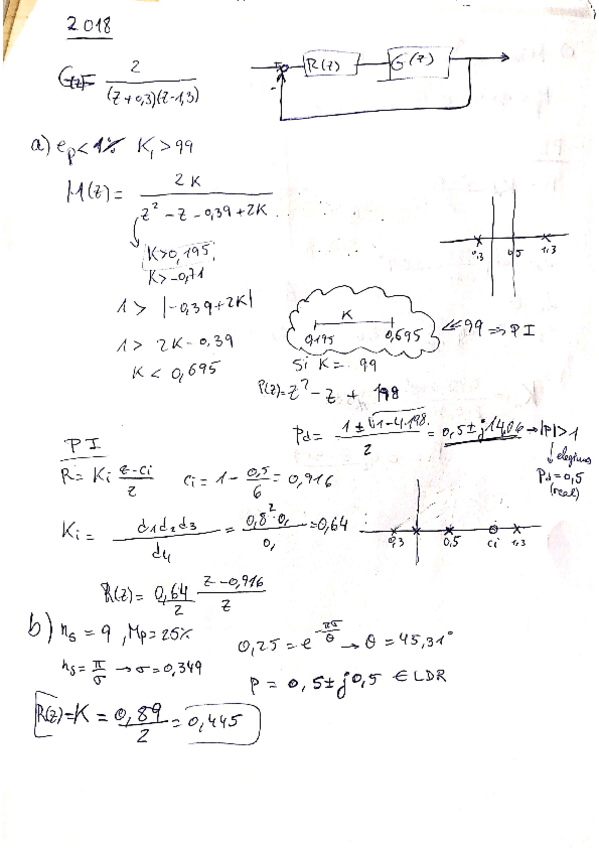 2018
G(z)= 2 / (z+0,3)(z-1,3)
R(z) G(z)
-
a) ep < 1% K, > 99
M(z) = 2K / z² - z - 0,39 + 2K
K > 0,195
K > -0,71
0,3 0,5 1.3
1 > |-0,39+2K|
1 > 2K - 0,39
K < 0,695
K
0,195 0,695 << 99 => PI
Si K = 99
P(z) = z² - z + 198
Pd = 1 ± √1-4.198 / 2 = 0,5 ± j14,06 → |P| > 1
elegimos
Pd = 0,5
(real)
PI
R = Ki z-ci / z ci = 1 - 0,5 / 6 = 0,916
Ki = d1 d2 d3 / d4 = 0,8²·0, / 0, = 0,64
0,3 0,5 ci 1.3
R(z) = 0,64 / 2 z-0,916 / z
b) ns = 9, Mp = 25% 0,25 = e^-πσ/θ → θ = 45,31°
ns = π / σ → σ = 0,349 p = 0,5 ± j0,5 ∈ LDR
R(z) = K = 0,89 / 2 = 0,445